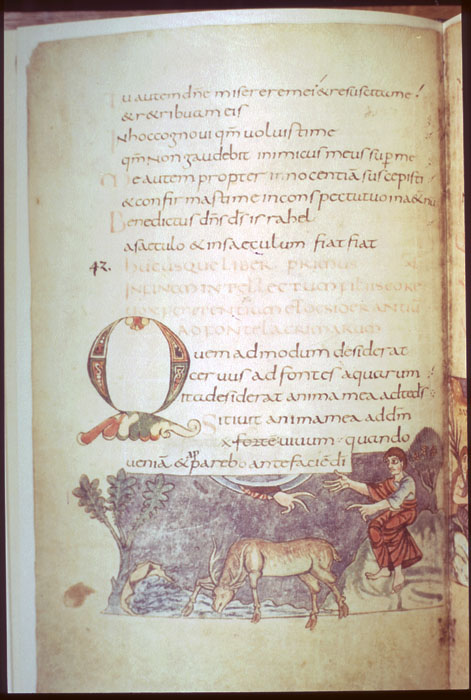 Tu autem dn̄e miserere mei & resuscita me
& r&ribuam eis
In hoc cognoui qm̄ voluisti me
qm̄ non gaudebit inimicus meus sup me
Me autem propter innocentiā suscepisti
& confirmasti me in conspectu tuo in a&nū
Benedictus dn̄s ds̄ israhel
a saeculo & in saeculum fiat fiat
42. HUCUSQUE LIBER PRIMUS
IN FINEM INTELLECTUM FILIIS CORE
AD FONTE LACRIMARUM
Quem admodum desiderat
ceruus ad fontes aquarum
ita desiderat anima mea ad te ds̄
Sitiuit anima mea ad dm̄
uiuum quando
ueniā & apparebo ante faciē dī